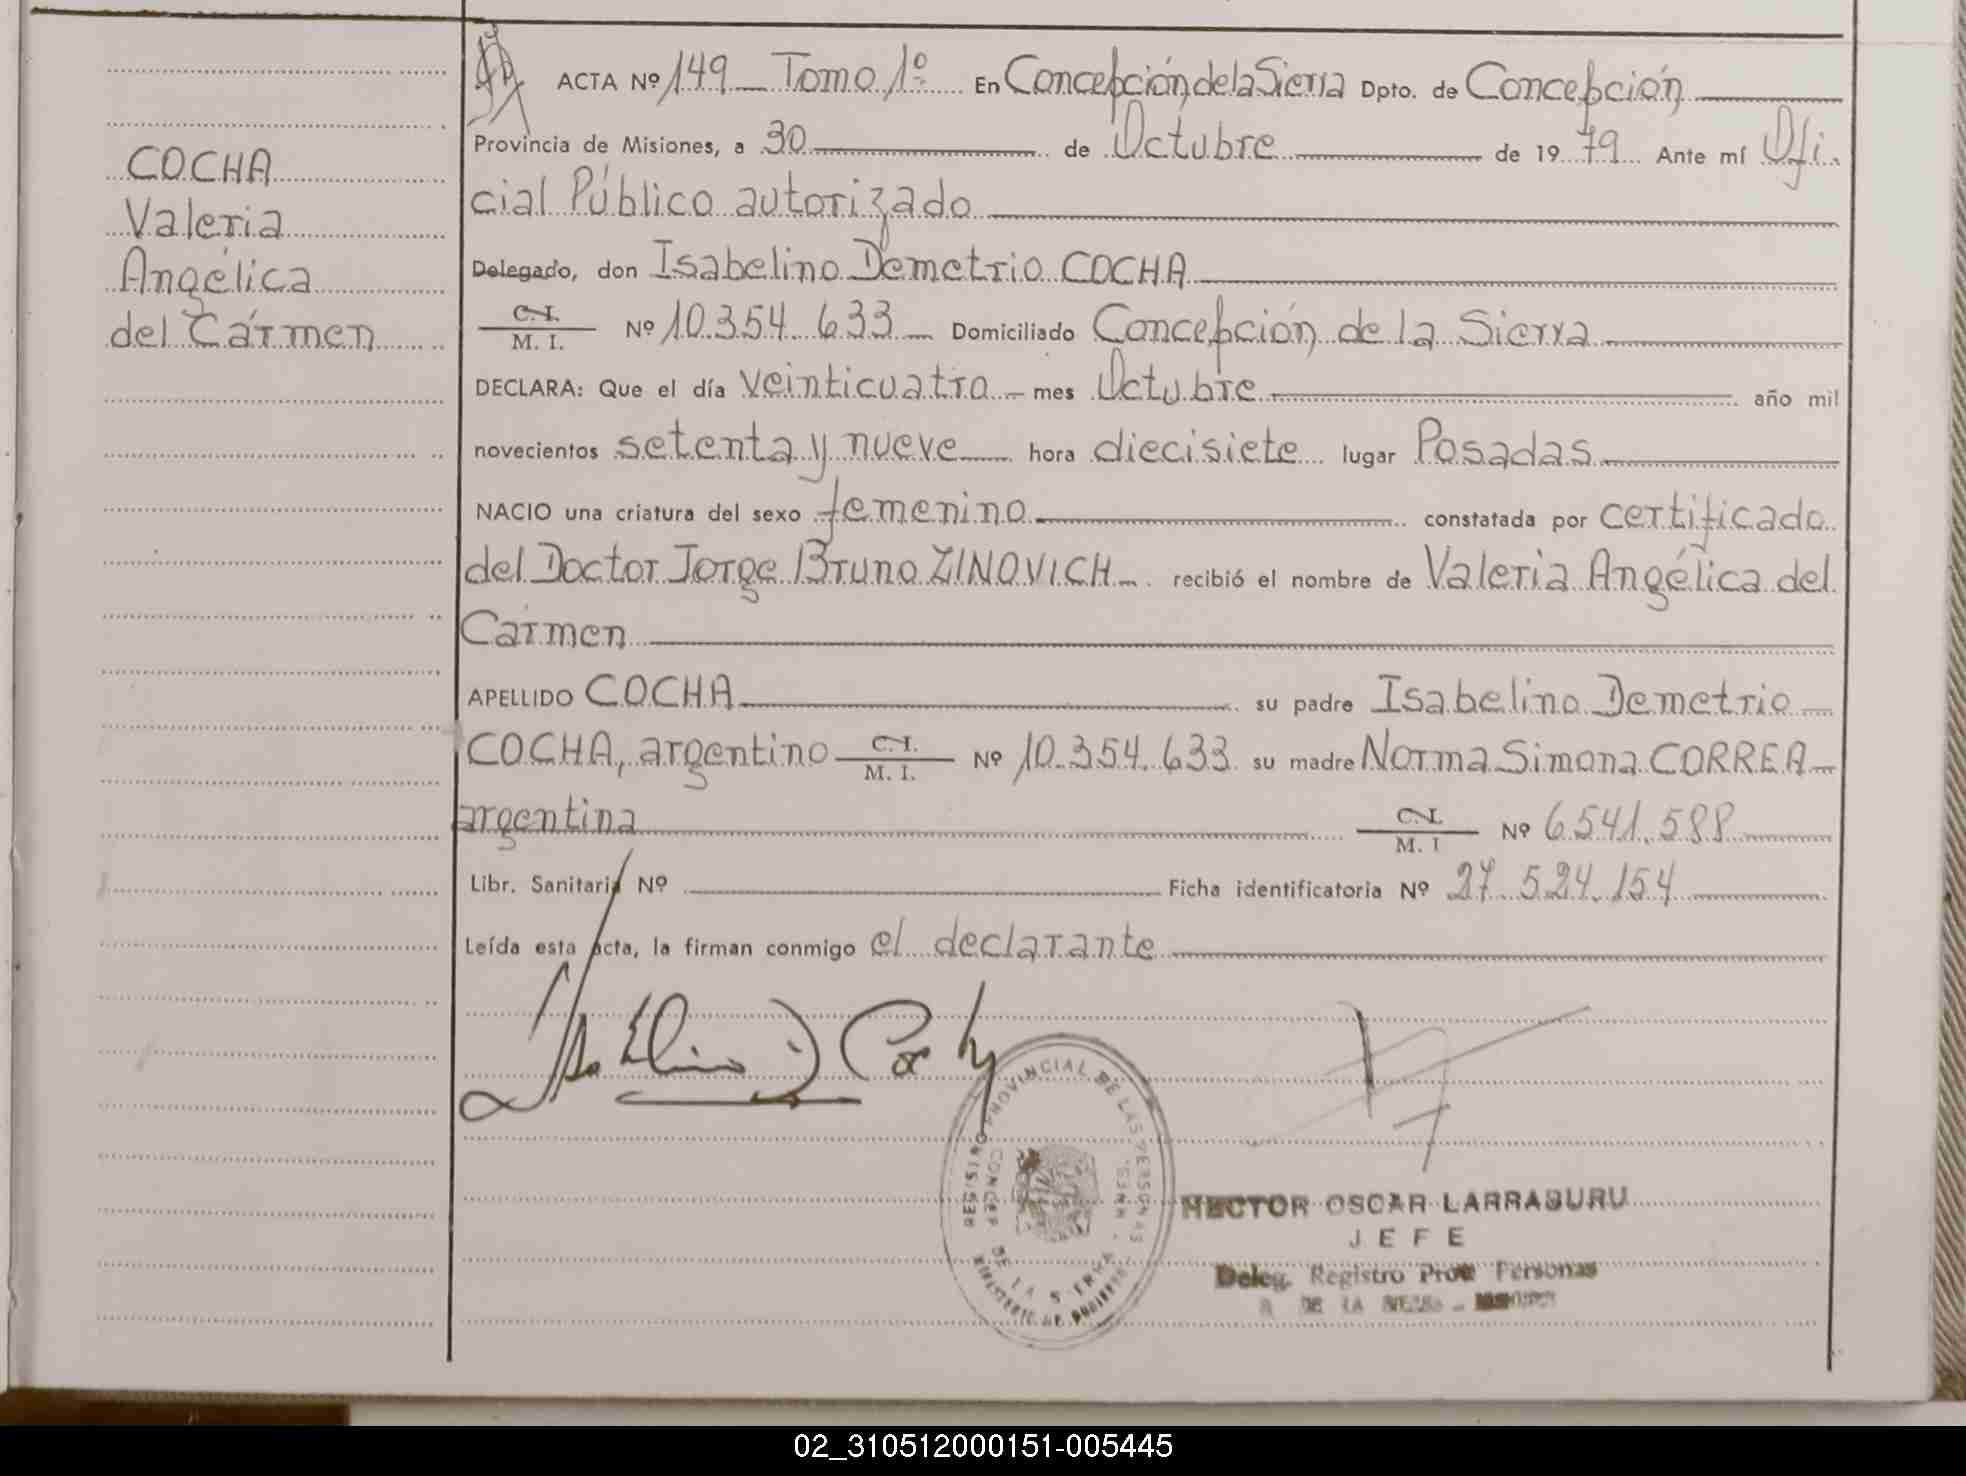 ACTA Nº 149 Tomo 1º En Concepción de la Sierra Dpto. de Concepción
Provincia de Misiones, a 30 de Octubre de 1979 Ante mí Ofi
cial Público autorizado
Delegado, don Isabelino Demetrio COCHA
C. I.
M. I. Nº 10.354.633 Domiciliado Concepción de la Sierra
DECLARA: Que el día veinticuatro mes Octubre año mil
novecientos setenta y nueve hora diecisiete lugar Posadas
NACIO una criatura del sexo femenino constatada por certificado
del Doctor Jorge Bruno ZINOVICH recibió el nombre de Valeria Angélica del
Carmen
APELLIDO COCHA su padre Isabelino Demetrio
COCHA, argentino C. I. M. I. Nº 10.354.633 su madre Norma Simona CORREA
argentina C. I. M. I Nº 6.541.588
Libr. Sanitaria Nº Ficha identificatoria Nº 27.524.154
Leída esta acta, la firman conmigo el declarante
COCHA
Valeria
Angélica
del Carmen
REGISTRO PROVINCIAL DE LAS PERSONAS
CONCEP. DE LA SIERRA
MINISTERIO DE GOBIERNO
HECTOR OSCAR LARRABURU
JEFE
Deleg. Registro Prov Personas
DE LA
02_310512000151-005445